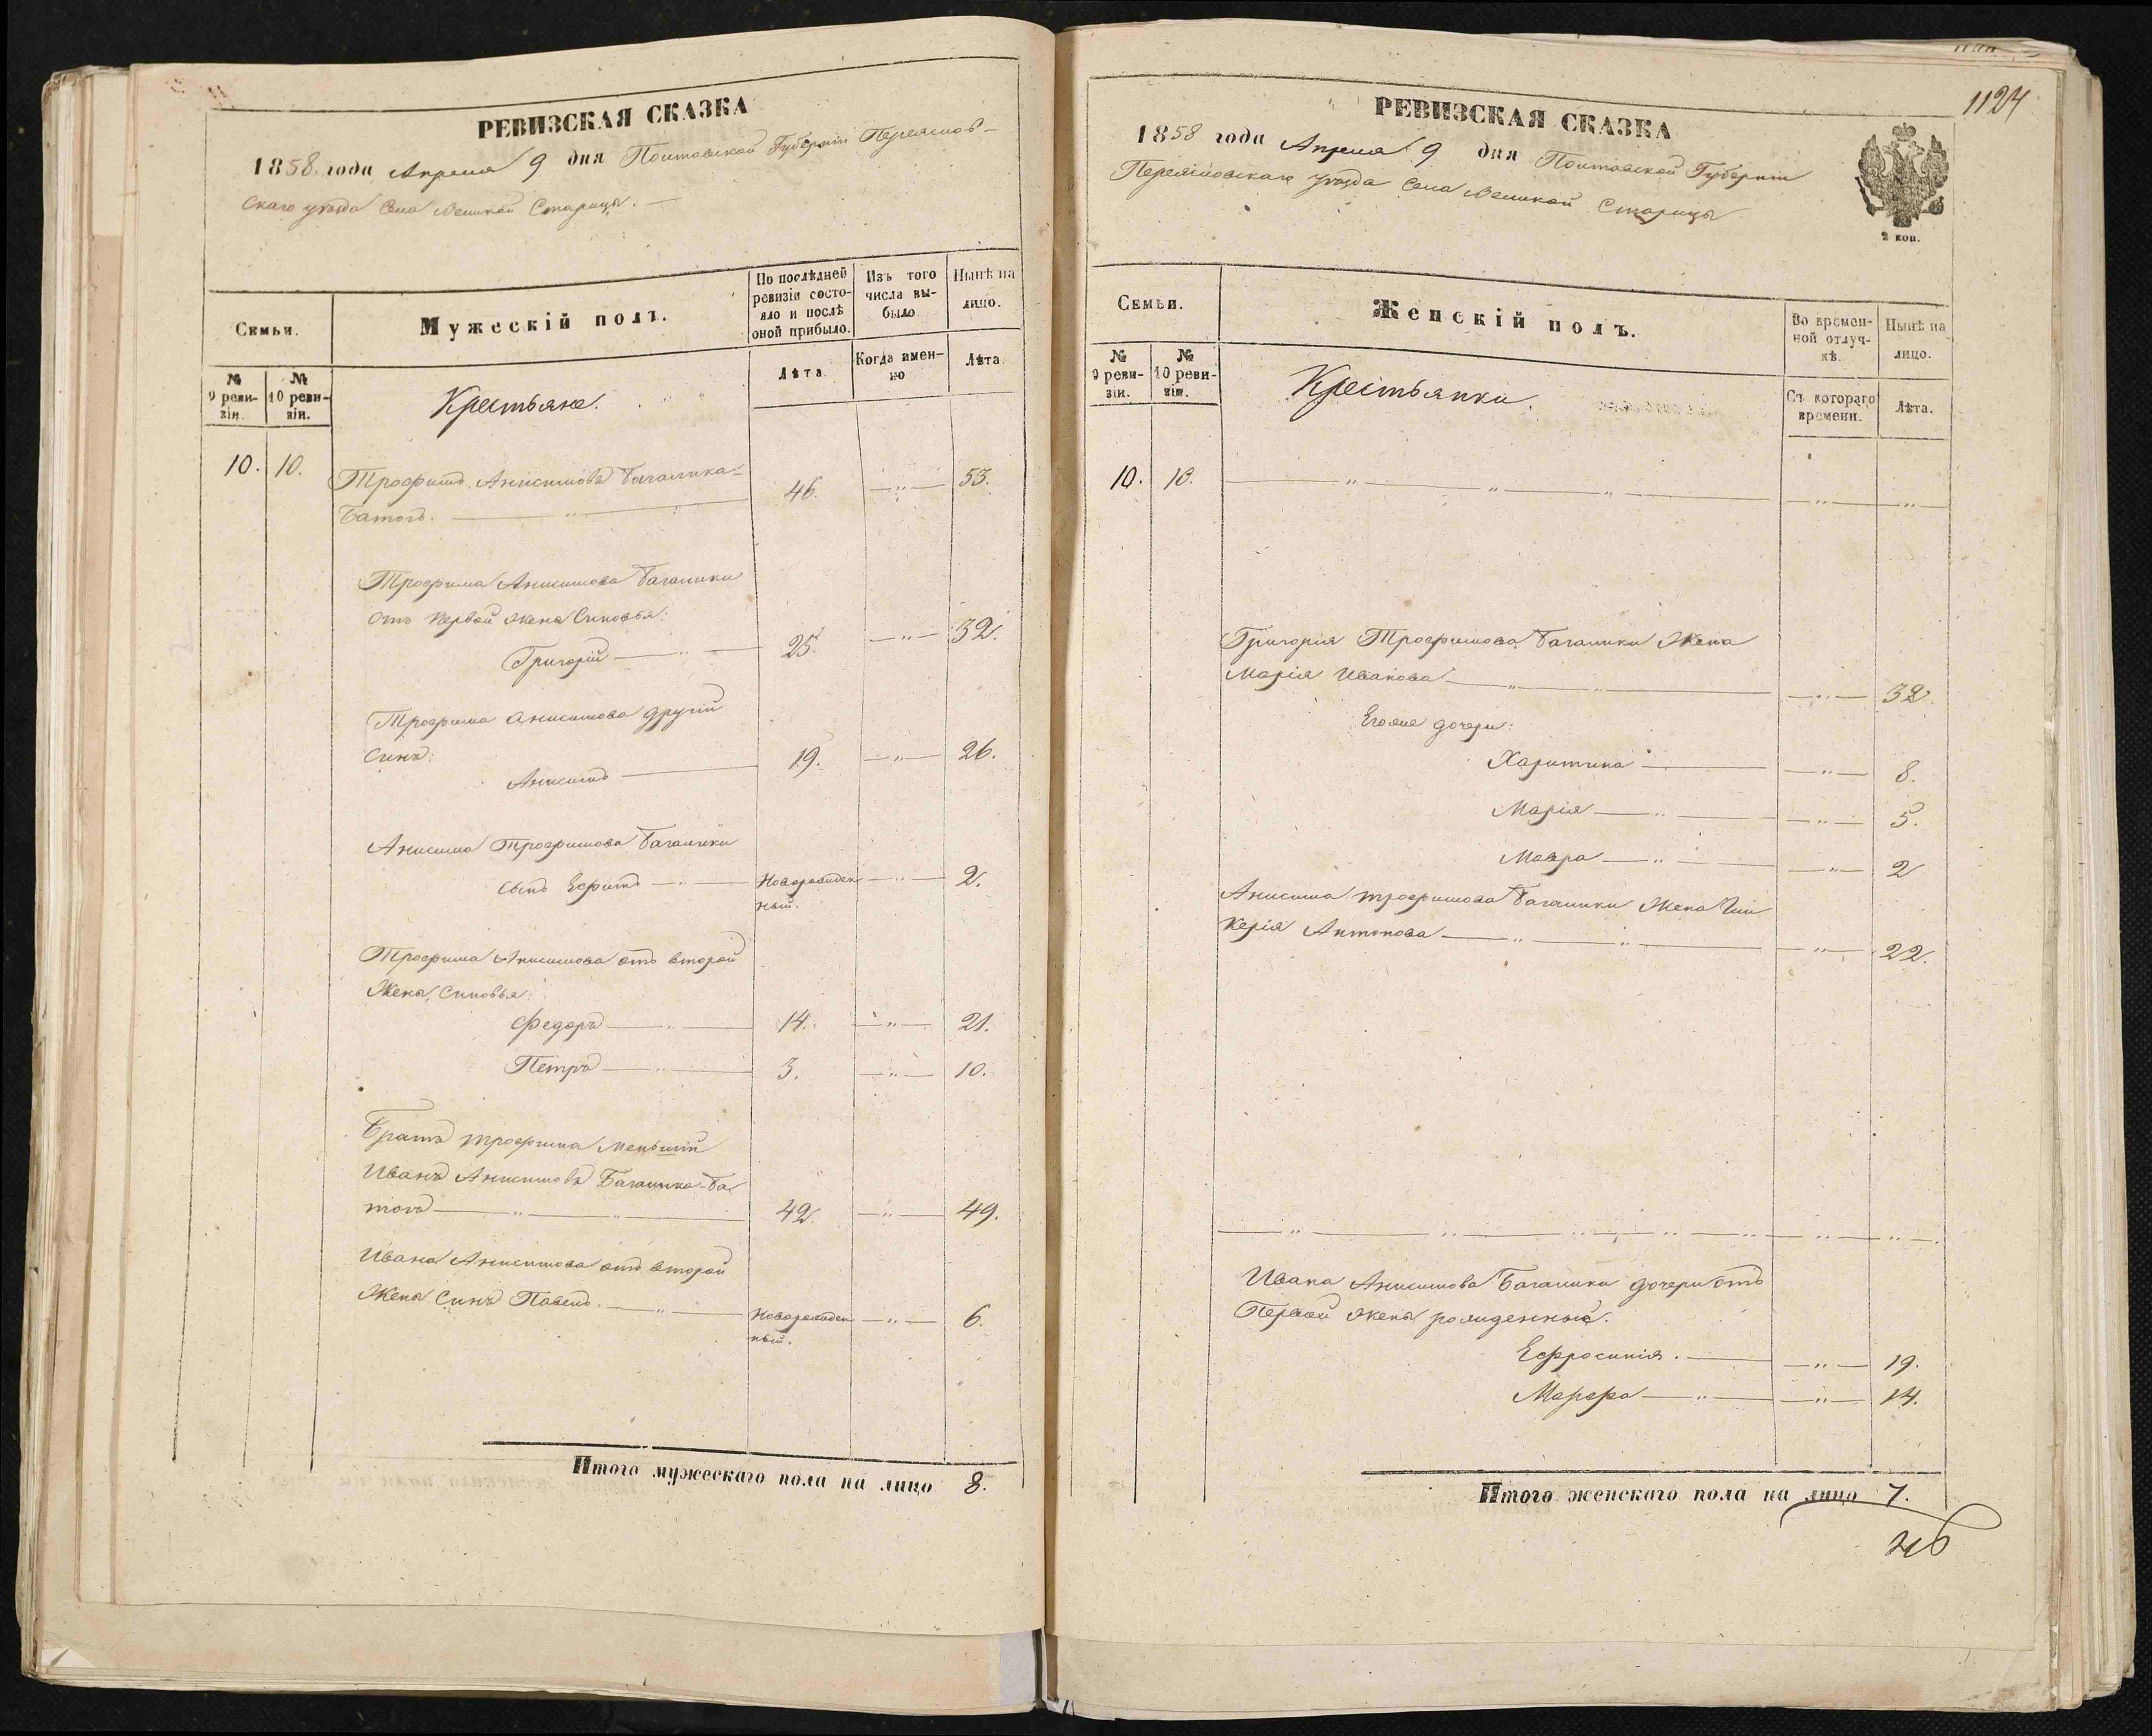 РЕВИЗСКАЯ СКАЗКА
1858 года Апреля 9 дня Полтавской Губернии Переяслов-
скаго уѣзда Села Великой Старицы.
Семьи.
Мужескій полъ.
По послѣдней ревизіи состояло и послѣ оной прибыло.
Изъ того числа выбыло.
Нынѣ на лицо.
№ 9 ревизіи.
№ 10 ревизіи.
Крестьяне.
Лѣта.
Когда именно
Лѣта.
10. 10. Трофимъ Анисимовъ Багалика- 46. —„— 53.
Батогъ. — „ —
Трофима Анисимова Багалики
отъ первой жены Синовья:
Григорій — „ — 25. —„— 32.
Трофима Анисимова другій
Синъ:
Анисимъ — 19. —„— 26.
Анисима Трофимова Багалики
сынъ Ефимъ — „ — Новорожден —„— 2.
ный.
Трофима Анисимова отъ второй
Жены Синовья:
Федоръ — „ — 14. —„— 21.
Петръ — „ — 3. —„— 10.
Братъ Трофима меньшій
Иванъ Анисимовъ Багалика-Ба
тогъ — „ — „ — 42. —„— 49.
Ивана Анисимова отъ второй
Жены Синъ Павелъ. — „ — Новорожден —„— 6.
ный.
Итого мужескаго пола на лицо 8.
1124
РЕВИЗСКАЯ СКАЗКА
1858 года Апреля 9 дня Полтавской Губернии
Переясловскаго уѣзда Села Великой Старицы
2 коп.
Семьи.
Женскій полъ.
Во временной отлучкѣ.
Нынѣ на лицо.
№ 9 ревизіи.
№ 10 ревизіи.
Крестьянки.
Съ котораго времени.
Лѣта.
10. 10. — „ — „ — „ — — „ — — „ —
Григорія Трофимова Багалики Жена
Марія Иванова — „ — „ — —„— 32
Егоже дочери:
Харитина — —„— 8.
Марія — „ — —„— 5.
Мавра — „ — —„— 2
Анисима Трофимова Багалики Жена Гли
керія Антонова — „ — „ — —„— 22.
— „ — „ — „ — „ — „ — „ — „ —
Ивана Анисимова Багалики дочери отъ
Первой жены рожденные.
Ефросинія. — —„— 19.
Марфа — „ — —„— 14.
Итого женскаго пола на лицо 7.